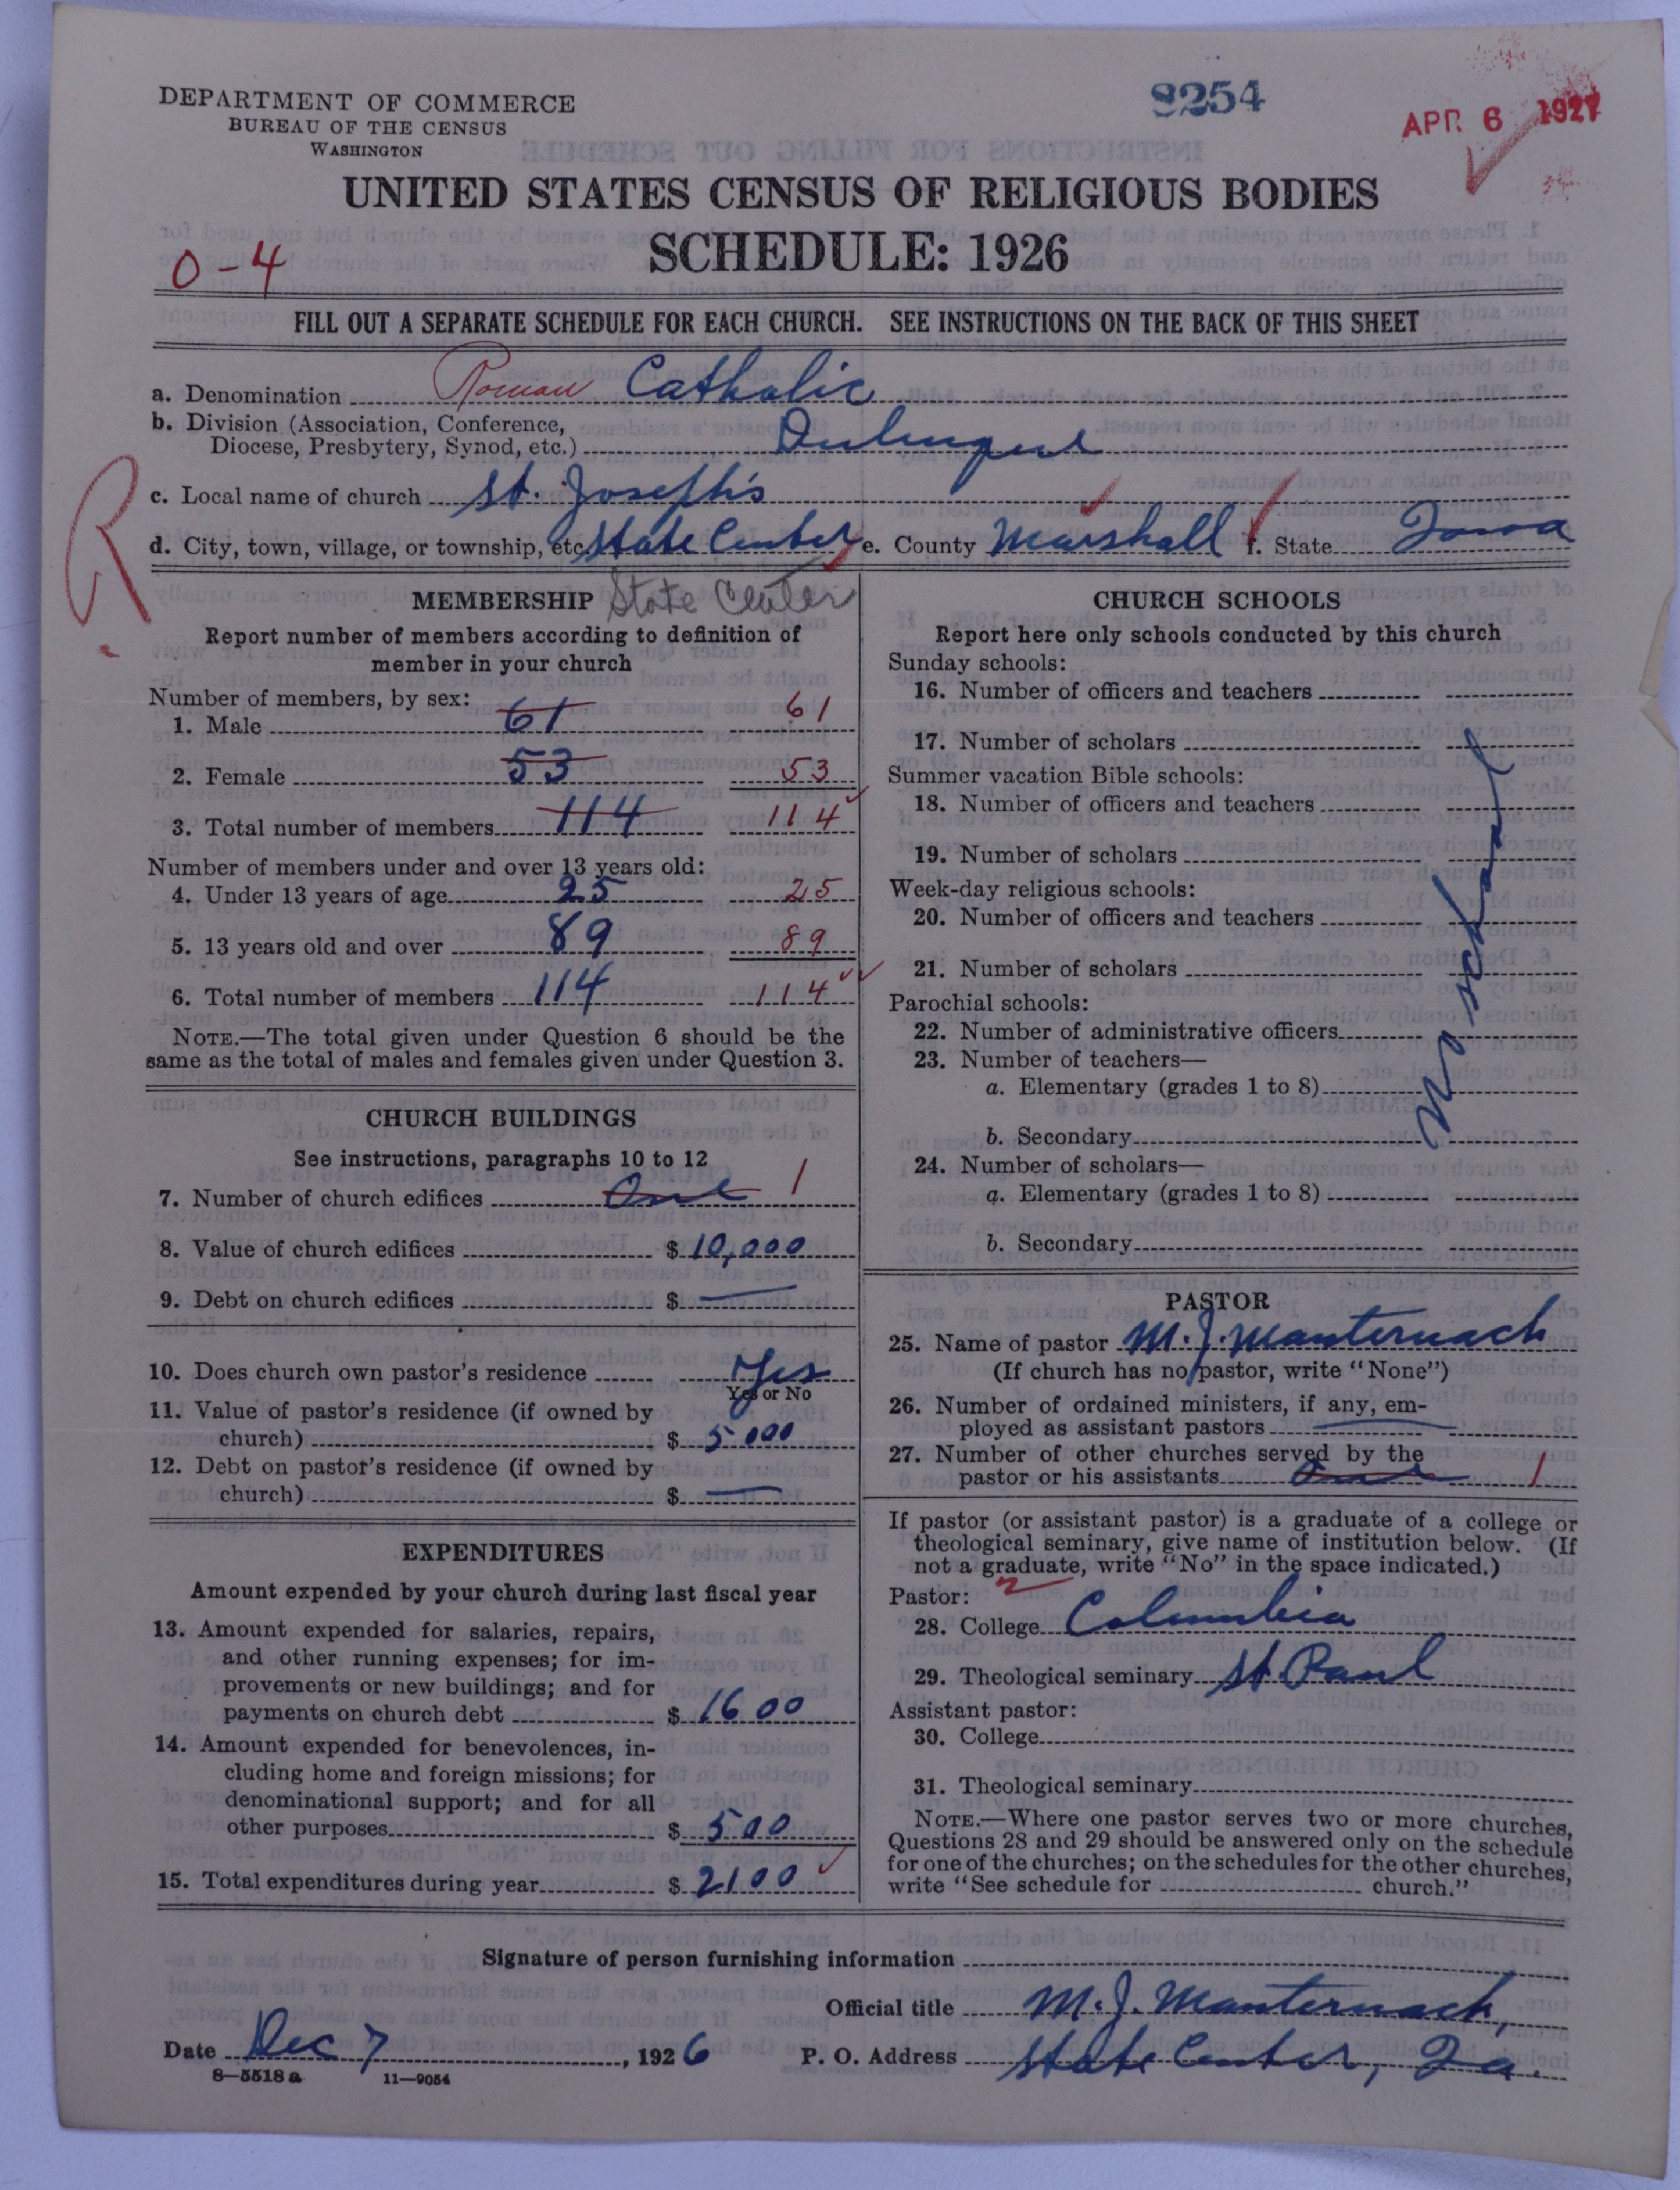 DEPARTMENT OF COMMERCE
BUREAU OF THE CENSUS
WASHINGTON
8254
APR 6 1927
UNITED STATES CENSUS OF RELIGIOUS BODIES
SCHEDULE: 1926
0-4
FILL OUT A SEPARATE SCHEDULE FOR EACH CHURCH. SEE INSTRUCTIONS ON THE BACK OF THIS SHEET
a. Denomination Roman Catholic
b. Division (Association, Conference,
Diocese, Presbytery, Synod, etc.) Dubuque
c. Local name of church St. Joseph's
d. City, town, village, or township, etc. State Center e. County Marshall f. State Iowa
R
MEMBERSHIP State Center
Report number of members according to definition of
member in your church
Number of members, by sex:
1. Male 61 61
2. Female 53 53
3. Total number of members 114 114
Number of members under and over 13 years old:
4. Under 13 years of age 25 25
5. 13 years old and over 89 89
6. Total number of members 114 114
NOTE.—The total given under Question 6 should be the
same as the total of males and females given under Question 3.
CHURCH BUILDINGS
See instructions, paragraphs 10 to 12
7. Number of church edifices One 1
8. Value of church edifices $ 10,000
9. Debt on church edifices $ —
10. Does church own pastor's residence Yes
Yes or No
11. Value of pastor's residence (if owned by
church) $ 5000
12. Debt on pastor's residence (if owned by
church) $ —
EXPENDITURES
Amount expended by your church during last fiscal year
13. Amount expended for salaries, repairs,
and other running expenses; for im-
provements or new buildings; and for
payments on church debt $ 1600
14. Amount expended for benevolences, in-
cluding home and foreign missions; for
denominational support; and for all
other purposes $ 500
15. Total expenditures during year $ 2100
CHURCH SCHOOLS
Report here only schools conducted by this church
Sunday schools:
16. Number of officers and teachers
17. Number of scholars
Summer vacation Bible schools:
18. Number of officers and teachers
19. Number of scholars
Week-day religious schools:
20. Number of officers and teachers
21. Number of scholars
Parochial schools:
22. Number of administrative officers
23. Number of teachers—
a. Elementary (grades 1 to 8)
b. Secondary
24. Number of scholars—
a. Elementary (grades 1 to 8)
b. Secondary
No school
PASTOR
25. Name of pastor M. J. Manternach
(If church has no pastor, write "None")
26. Number of ordained ministers, if any, em-
ployed as assistant pastors —
27. Number of other churches served by the
pastor or his assistants One 1
If pastor (or assistant pastor) is a graduate of a college or
theological seminary, give name of institution below. (If
not a graduate, write "No" in the space indicated.)
Pastor: 2
28. College Columbia
29. Theological seminary St Paul
Assistant pastor:
30. College
31. Theological seminary
NOTE.—Where one pastor serves two or more churches,
Questions 28 and 29 should be answered only on the schedule
for one of the churches; on the schedules for the other churches,
write "See schedule for church."
Signature of person furnishing information
Official title M. J. Manternach,
Date Dec 7, 1926 P. O. Address State Center, Ia.
8—5518 a 11—9054